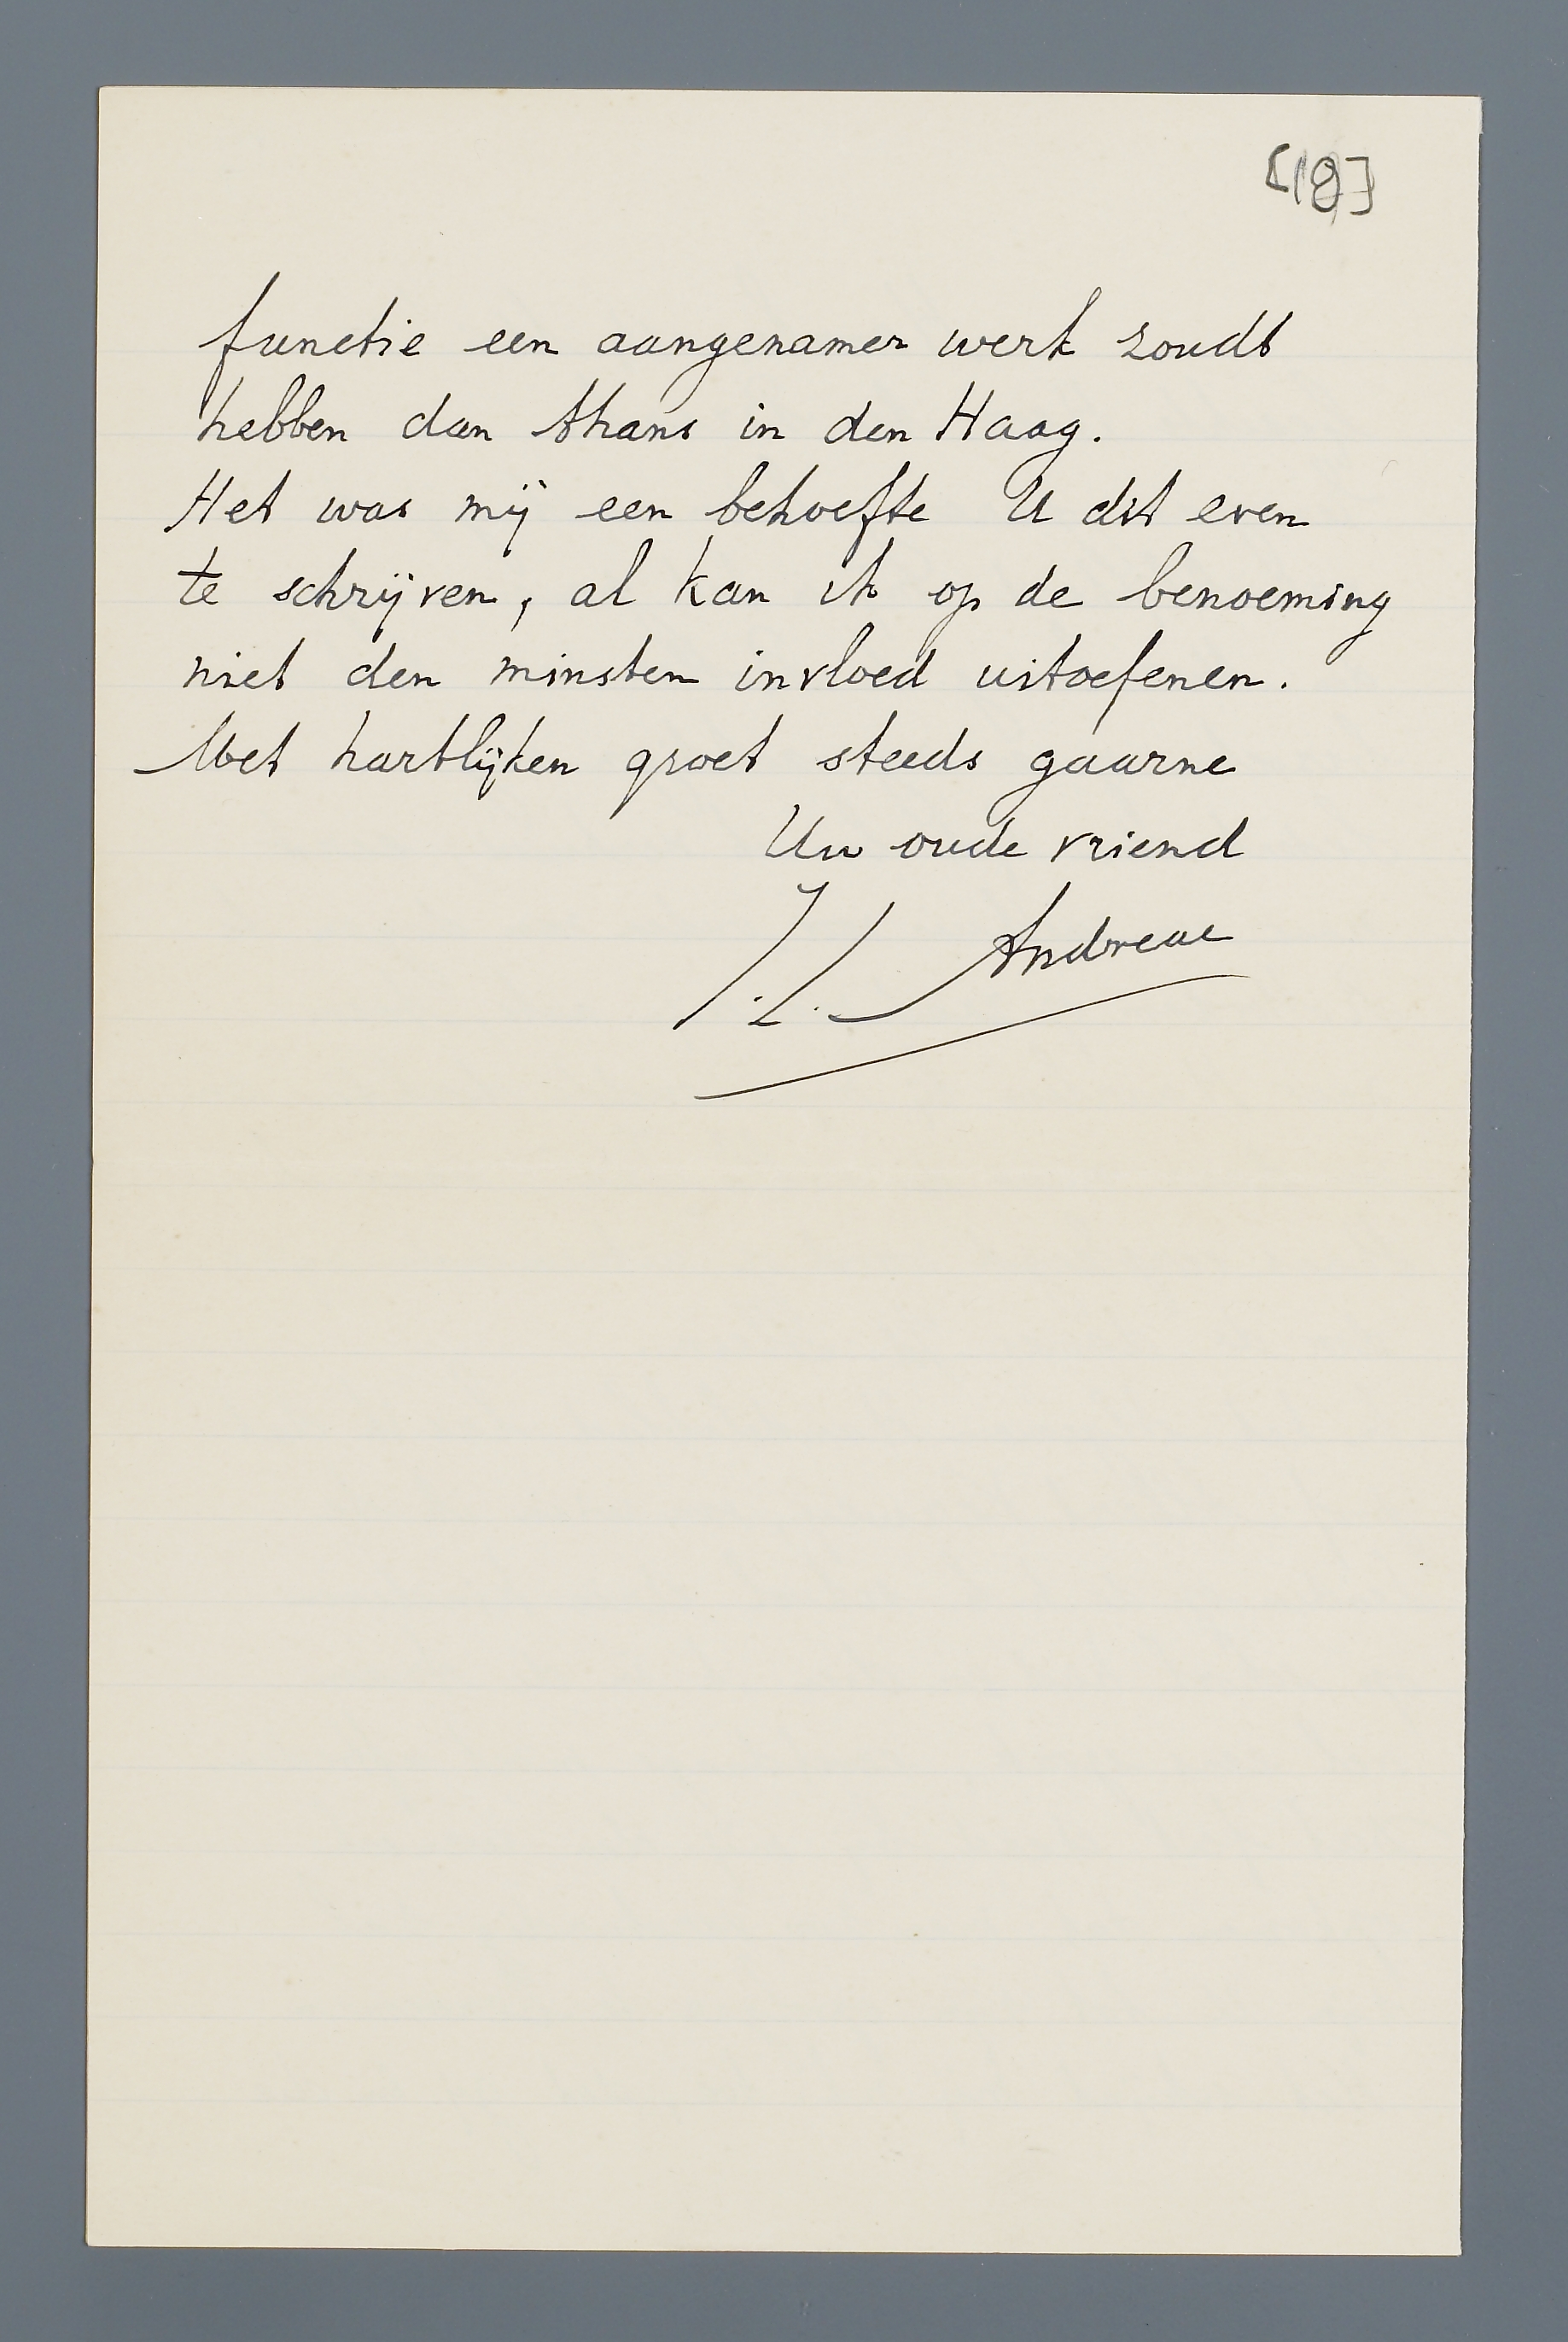 [18]
functie een aangenamer werk zoudt
hebben dan thans in den Haag.
Het was mij een behoefte U dit even
te schrijven, al kan ik op de benoeming
niet den minsten invloed uitoefenen.
Met hartlijken groet steeds gaarne
Uw oude vriend
J.L. Andreae